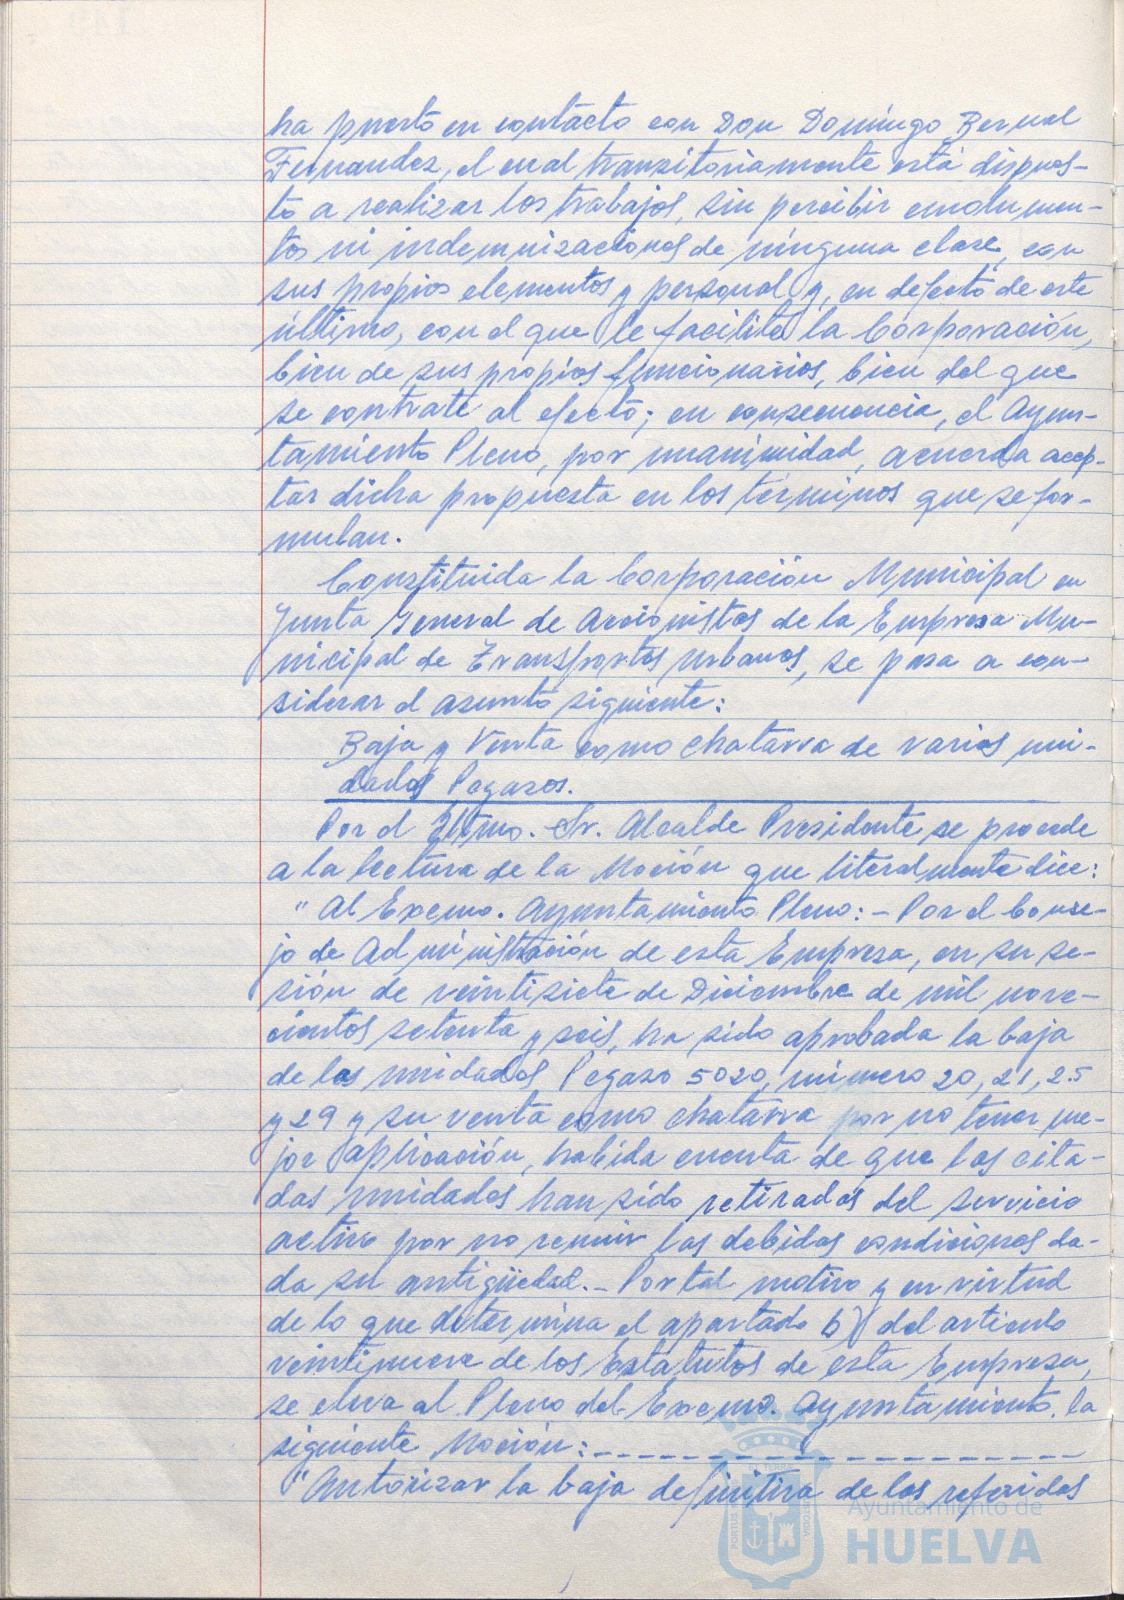 ha puesto en contacto con Don Domingo Bernal
Fernandez, el cual transitoriamente está dispues-
to a realizar los trabajos, sin percibir emolumen-
tos ni indemnizaciones de ninguna clase, con
sus propios elementos y personal y, en defecto de este
último, con el que le facilite la Corporación,
bien de sus propios funcionarios, bien del que
se contrate al efecto; en consecuencia, el Ayun-
tamiento Pleno, por unanimidad, acuerda acep-
tar dicha propuesta en los términos que se for-
mulan.
Constituida la Corporación Municipal en
Junta General de Accionistas de la Empresa Mu-
nicipal de Transportes Urbanos, se pasa a con-
siderar el asunto siguiente:
Baja y Venta como chatarra de varias uni-
dades Pegasos.
Por el Iltmo. Sr. Alcalde Presidente se procede
a la lectura de la Moción que literalmente dice:
"Al Excmo. Ayuntamiento Pleno: - Por el Conse-
jo de Administración de esta Empresa, en su se-
sión de veintisiete de Diciembre de mil nove-
cientos setenta y seis, ha sido aprobada la baja
de las unidades Pegaso 5020, número 20, 21, 25
y 29 y su venta como chatarra por no tener me-
jor aplicación, habida cuenta de que las cita-
das unidades han sido retiradas del servicio
activo por no reunir las debidas condiciones da-
da su antigüedad.- Por tal motivo y en virtud
de lo que determina el apartado b) del artículo
veintinueve de los Estatutos de esta Empresa,
se eleva al Pleno del Excmo. Ayuntamiento, la
siguiente Moción:--------------------
"Autorizar la baja definitiva de las referidas
Ayuntamiento de
HUELVA